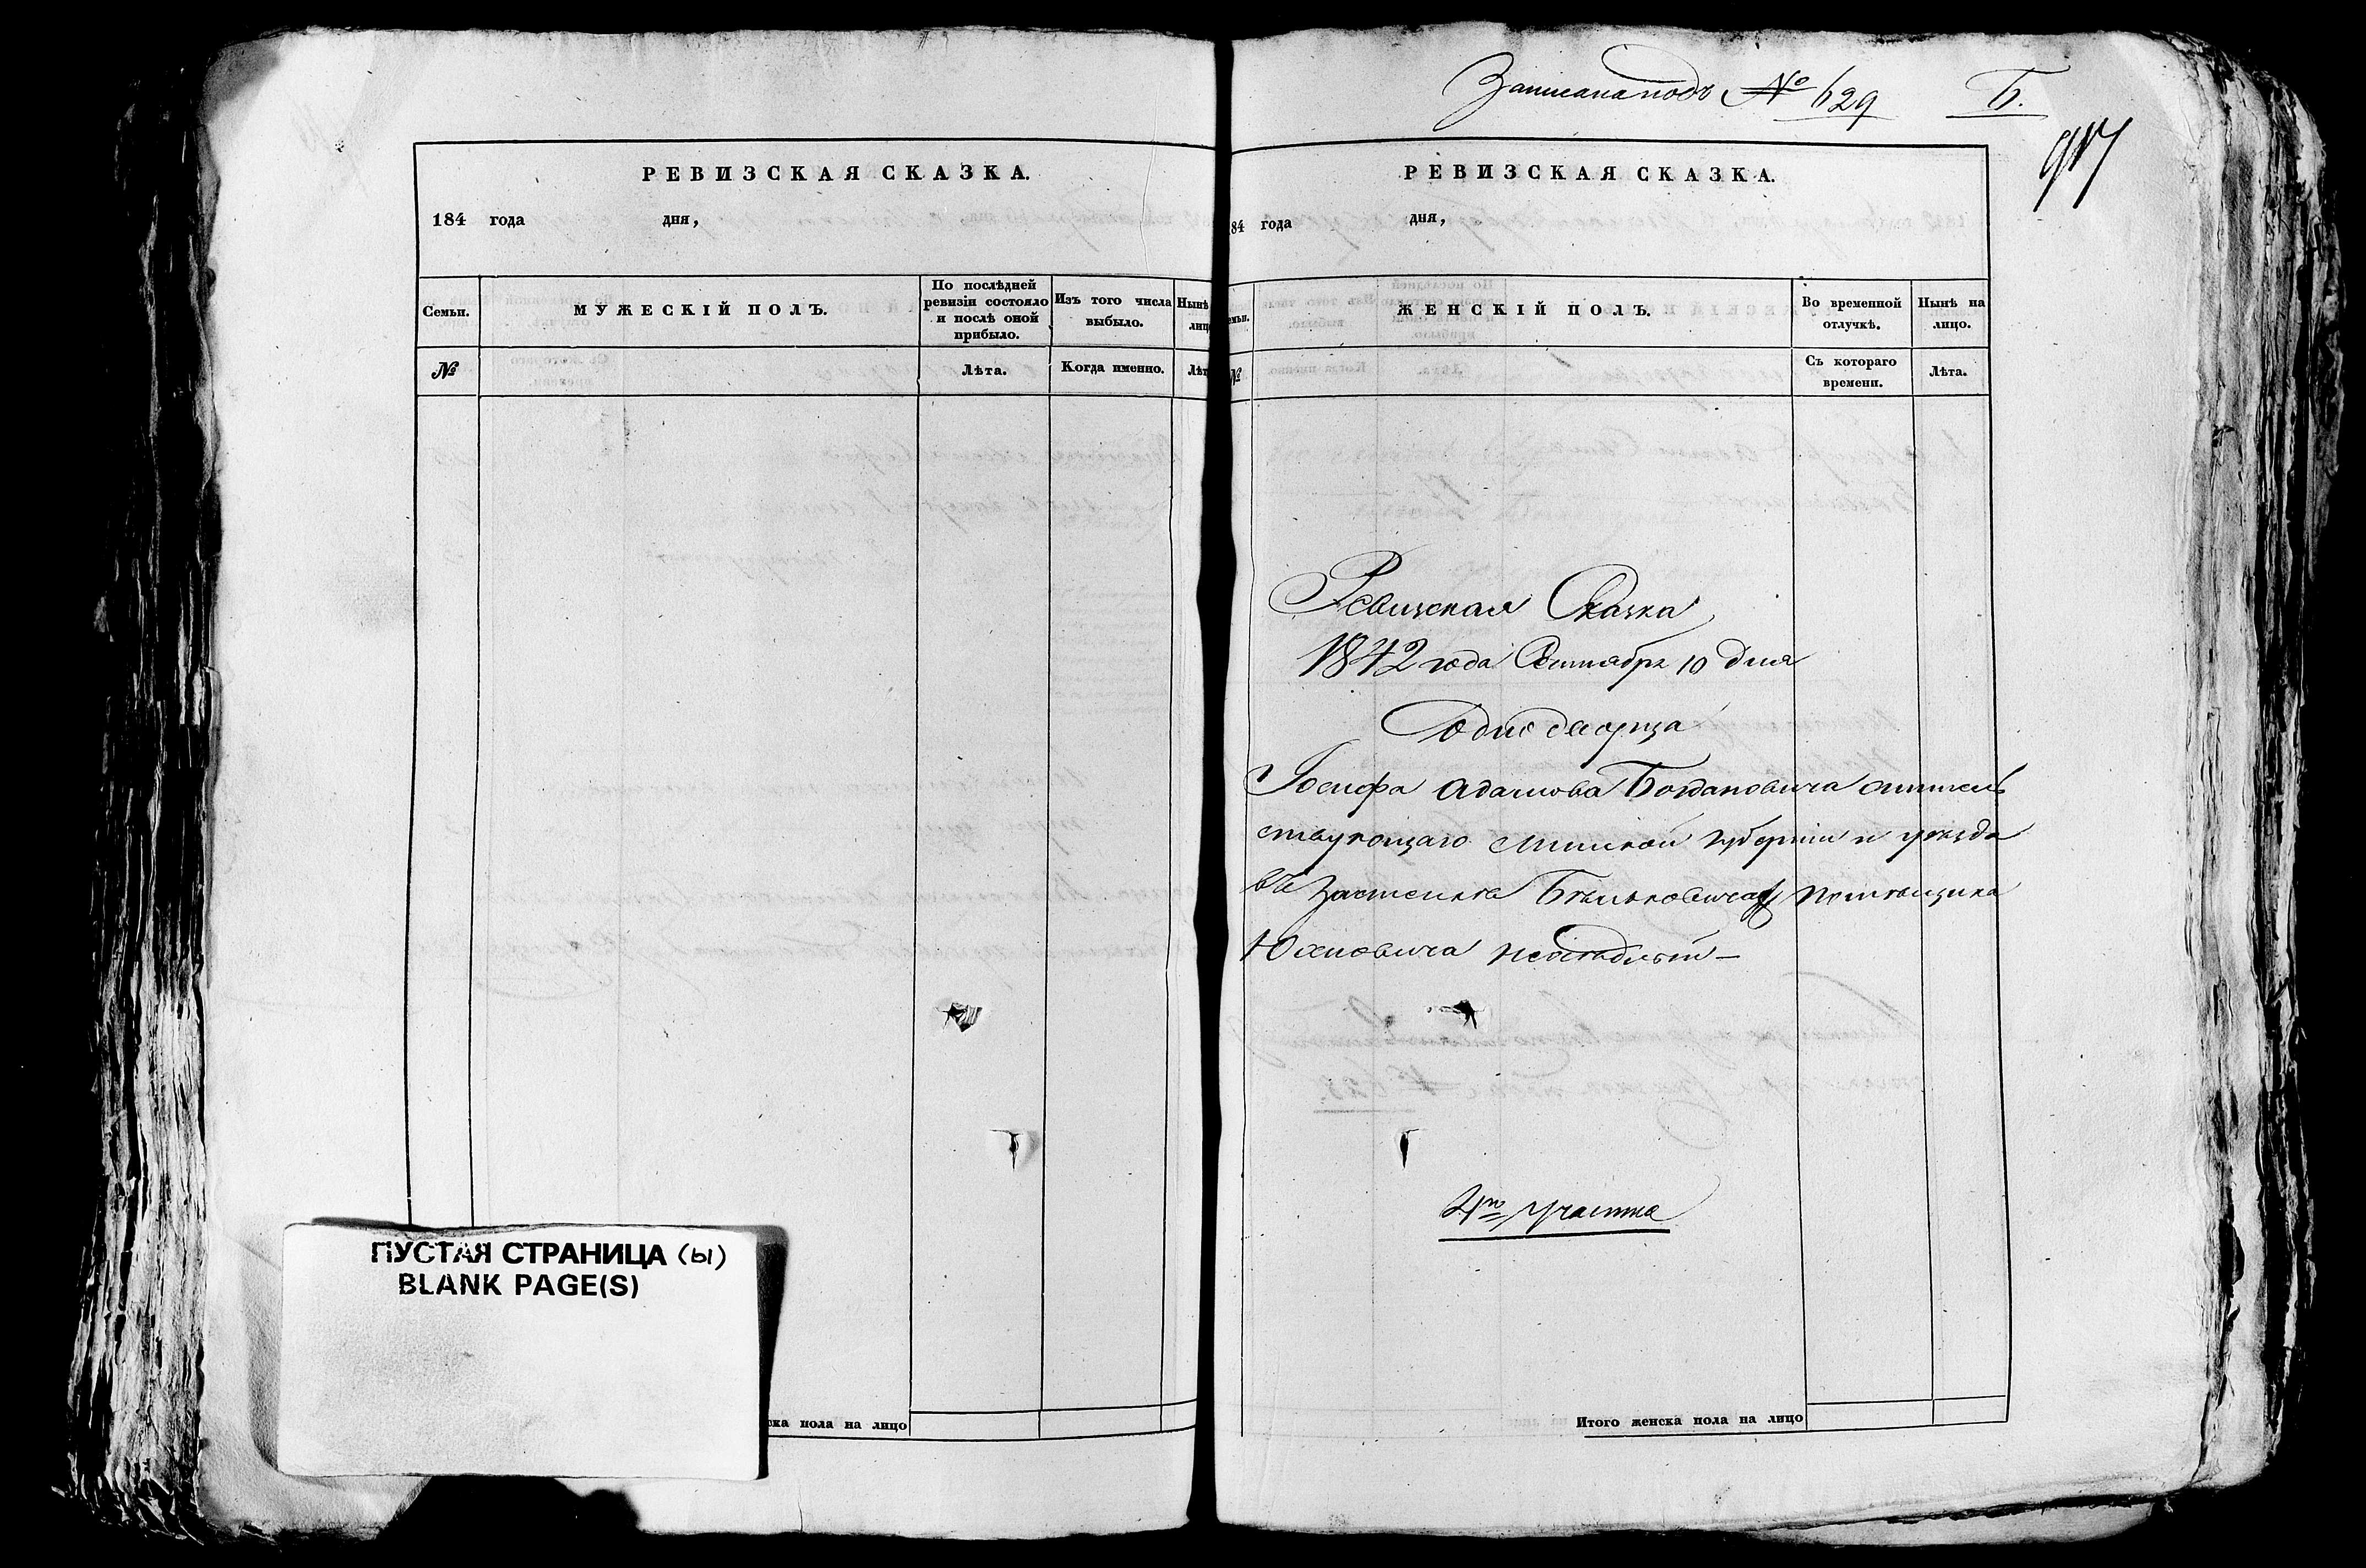 РЕВИЗСКАЯ СКАЗКА.
184 года дня,
Семьи. МУЖЕСКІЙ ПОЛЪ. По послѣдней ревизіи состояло и послѣ оной прибыло. Изъ того числа выбыло. Нынѣ
№ Лѣта. Когда именно. Лѣт
ска пола на лицо
ПУСТАЯ СТРАНИЦА (ы)
BLANK PAGE(S)
Записана подъ № 629 Б.
917
РЕВИЗСКАЯ СКАЗКА.
84 года дня,
ЖЕНСКІЙ ПОЛЪ. Во временной отлучкѣ. Нынѣ на лицо.
№ Съ котораго времени. Лѣта.
Ревизская Сказка
1842 года Октября 10 дня
Однодворца
Іосифа Адамова Богдановича жительствующаго
Минской губерніи и уѣзда
въ застенкѣ помѣщика
Юхновича
4го участка
Итого женска пола на лицо